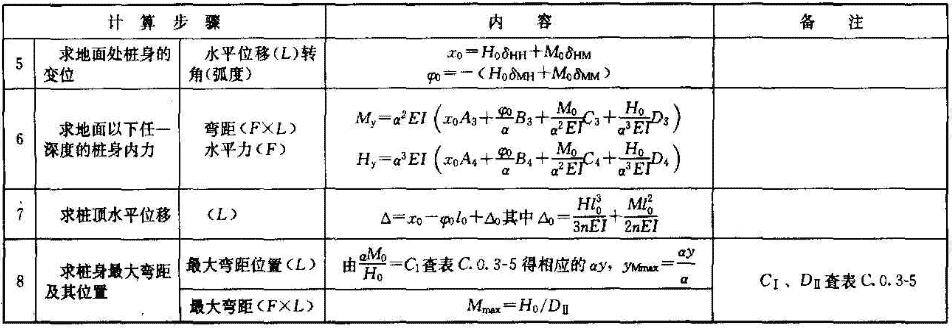 计 算 步 骤 内 容 备 注
5 求地面处桩身的变位 水平位移(L)转角(弧度) x₀=H₀δHH+M₀δHM
φ₀=-(H₀δMH+M₀δMM)
6 求地面以下任一深度的桩身内力 弯距(F×L)
水平力(F) My=α²EI(x₀A₃+φ₀/α B₃+M₀/α²EI C₃+H₀/α³EI D₃)
Hy=α³EI(x₀A₄+φ₀/α B₄+M₀/α²EI C₄+H₀/α³EI D₄)
7 求桩顶水平位移 (L) Δ=x₀-φ₀l₀+Δ₀其中Δ₀=Hl₀³/3nEI+Ml₀²/2nEI
8 求桩身最大弯距及其位置 最大弯距位置(L) 由αM₀/H₀=CⅠ查表C.0.3-5得相应的αy，yMmax=αy/α CⅠ、DⅡ查表C.0.3-5
最大弯距(F×L) Mmax=H₀/DⅡ